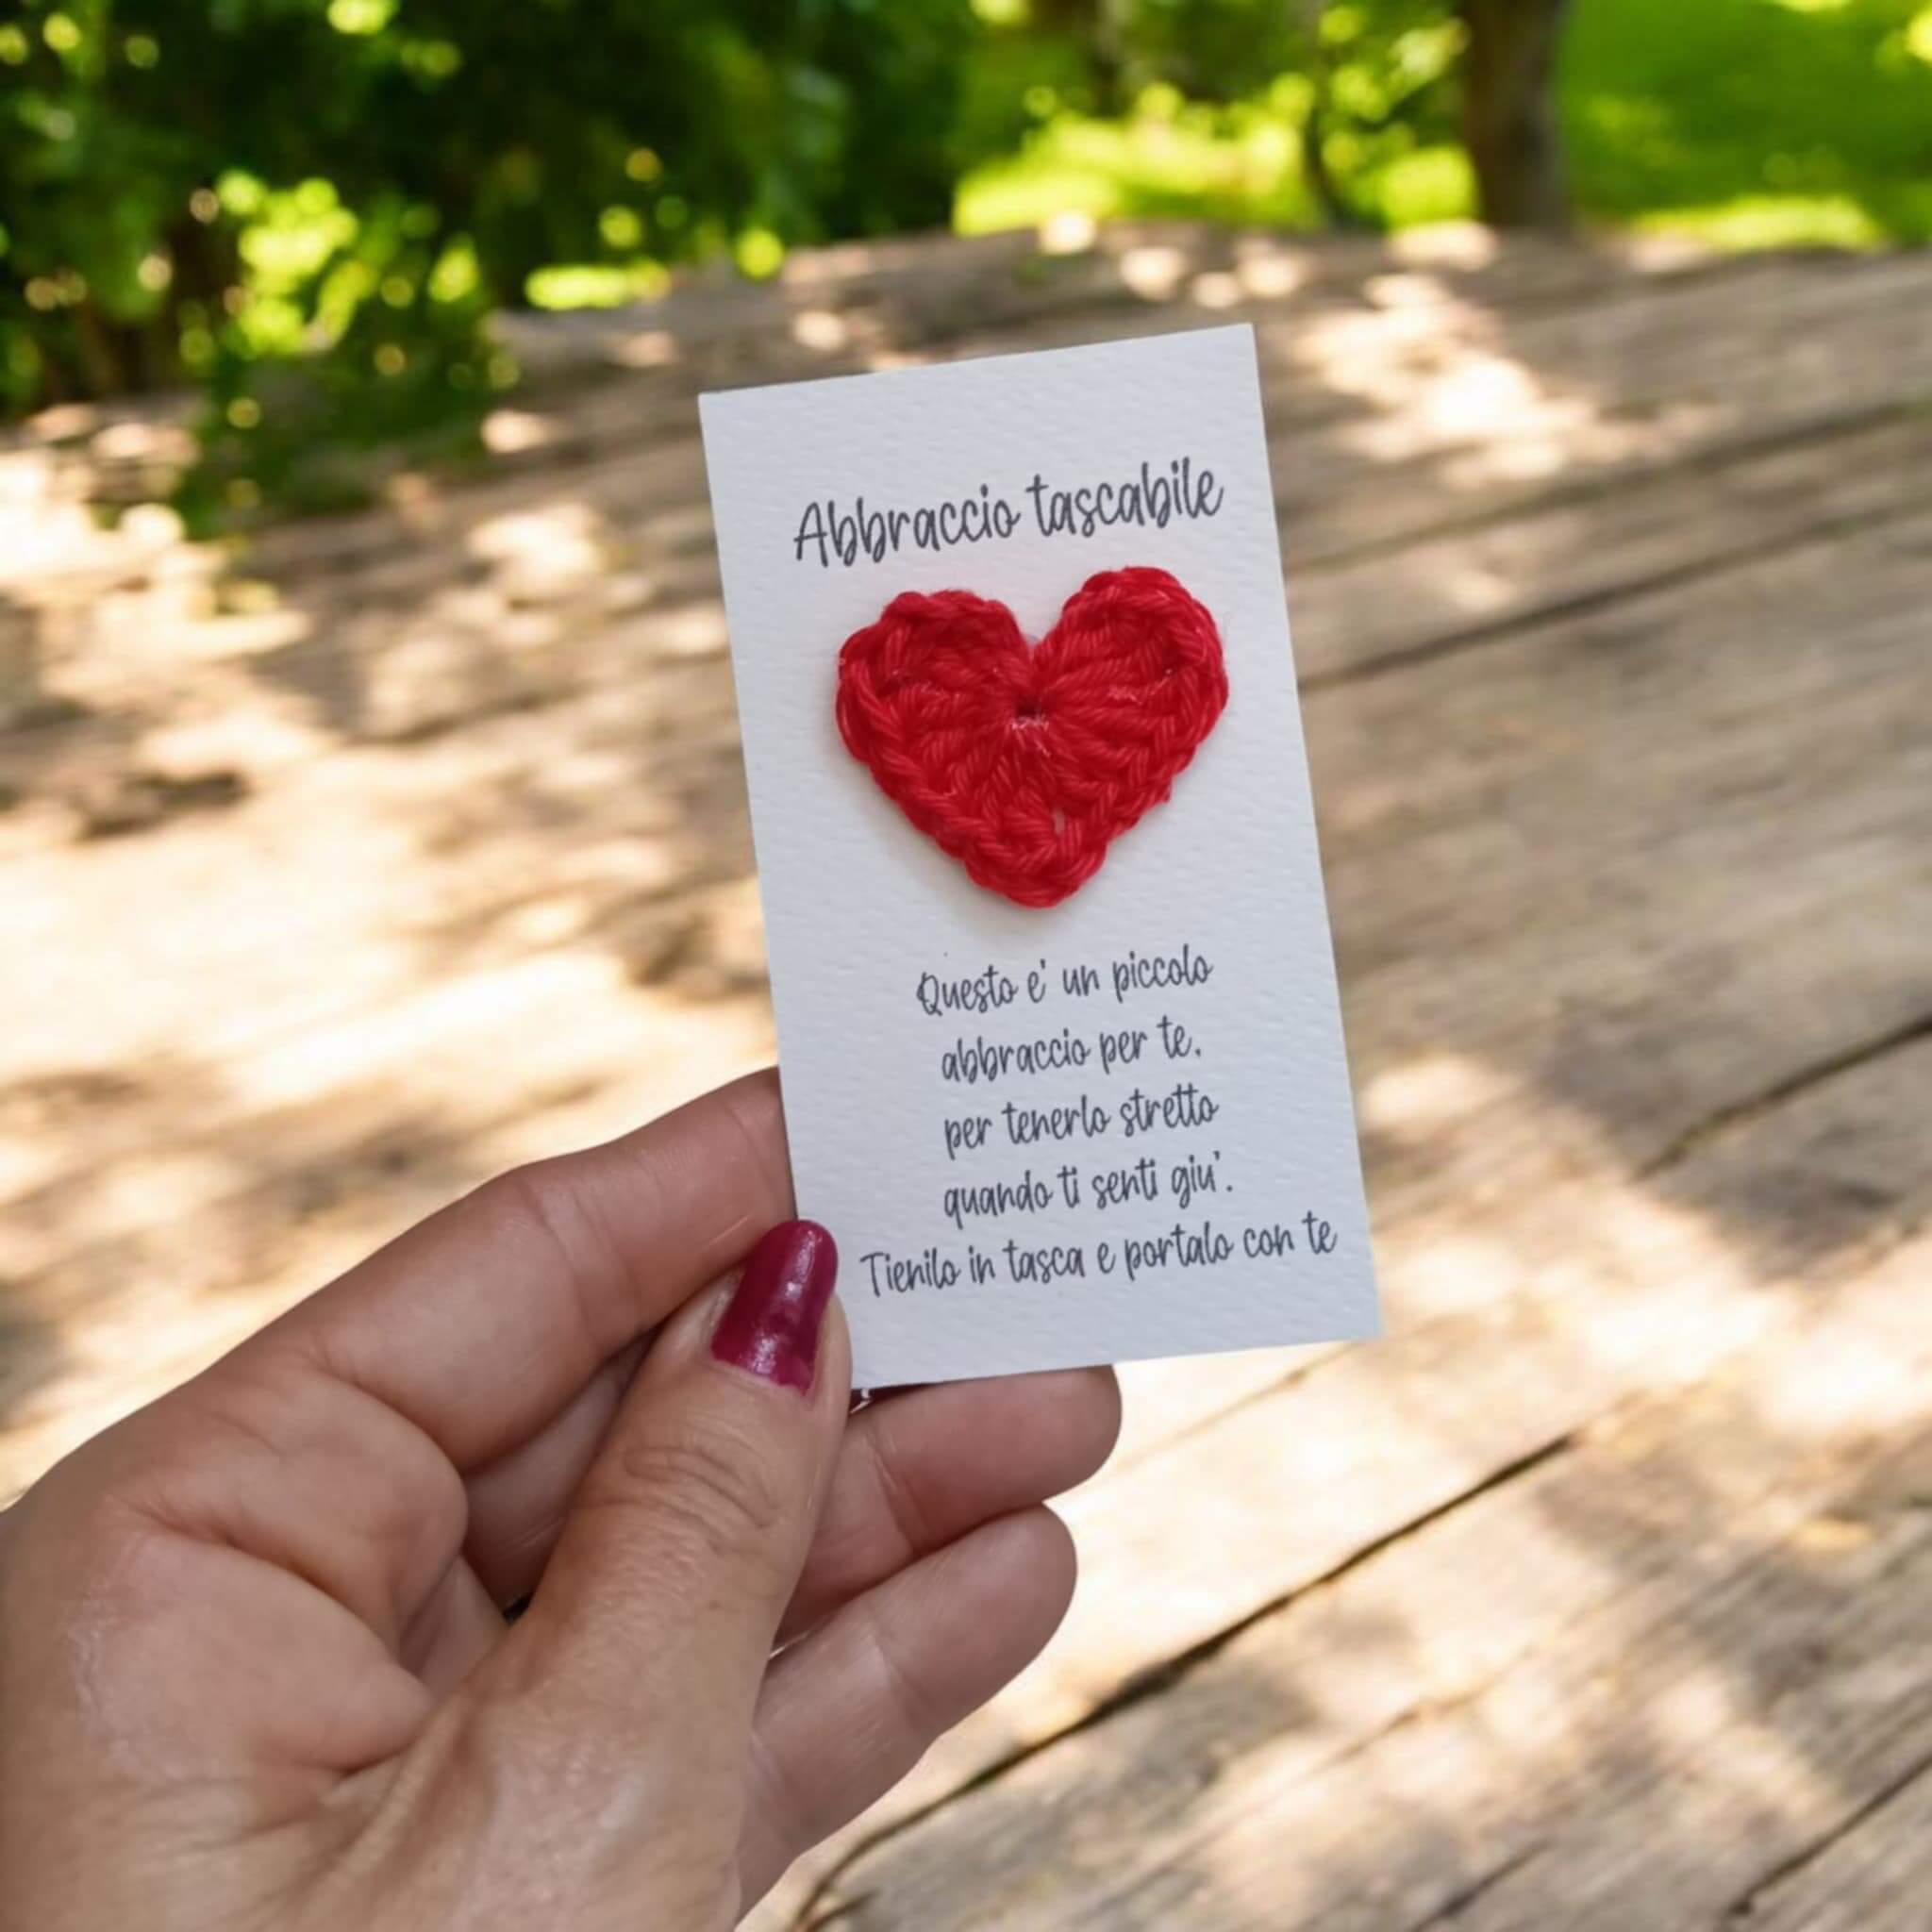 Abbraccio tascabile
Questo e' un piccolo
abbraccio per te,
per tenerlo stretto
quando ti senti giu'.
Tienilo in tasca e portalo con te